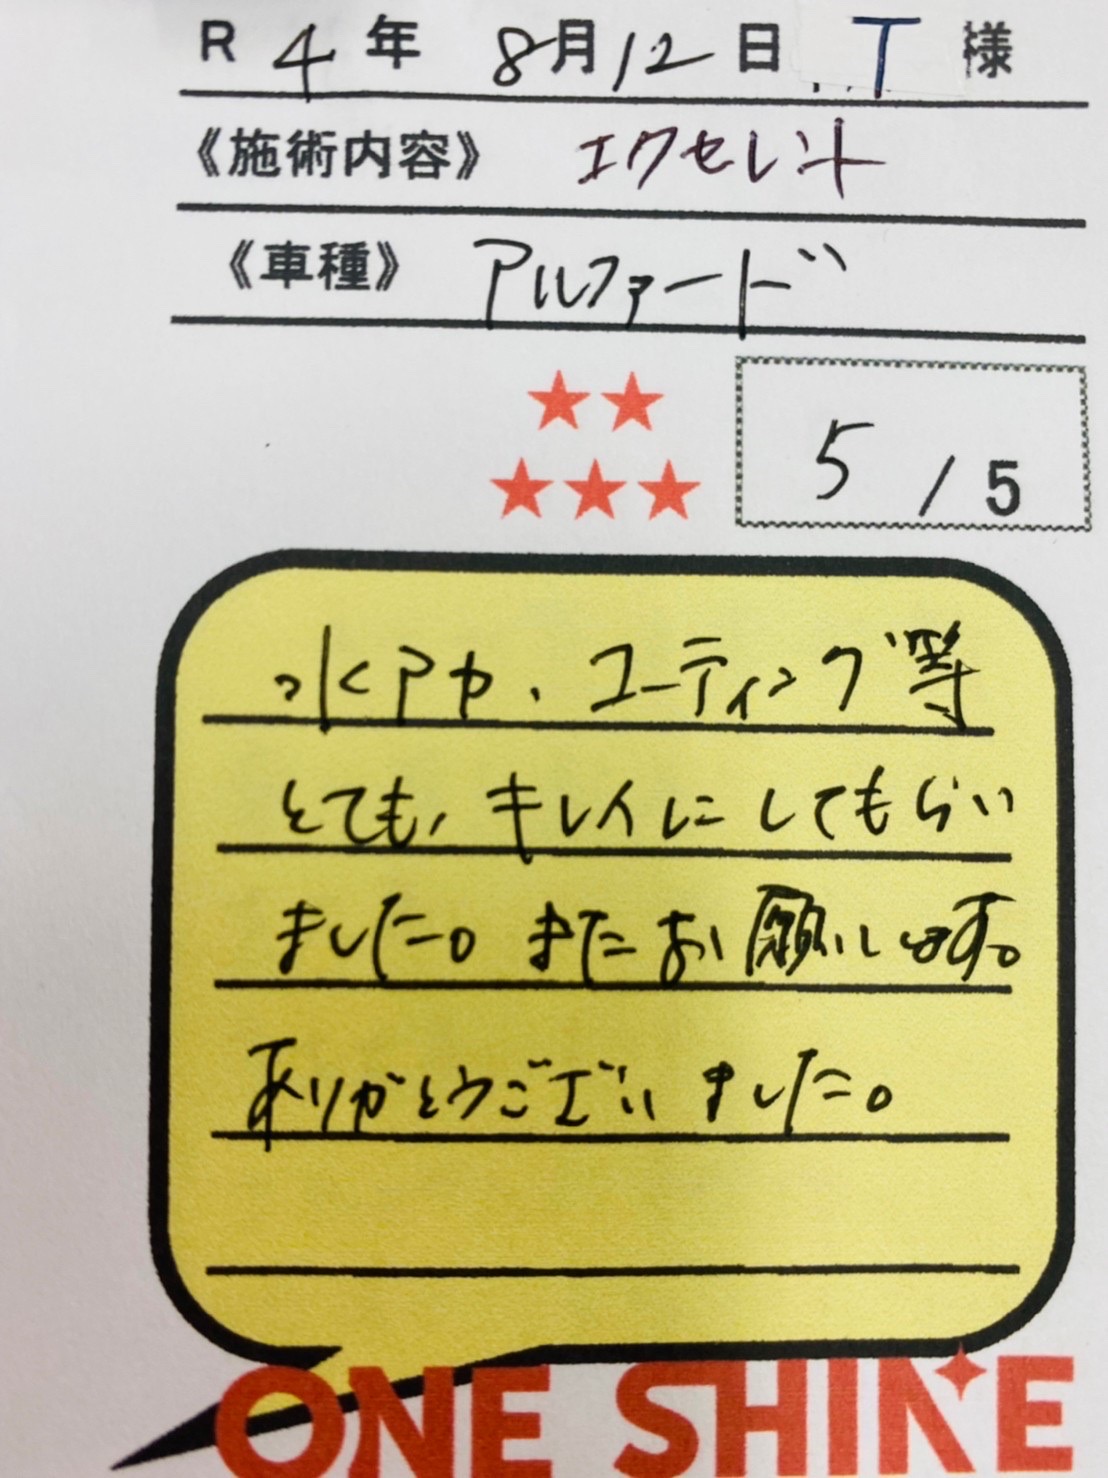 R 4 年 8月12日 T 様
《施術内容》 エクセレント
《車種》 アルファード
★★
★★★
5 / 5
水アカ、コーティング等
とても、キレイにしてもらい
ました。またお願いします。
ありがとうございました。
ONE SHINE